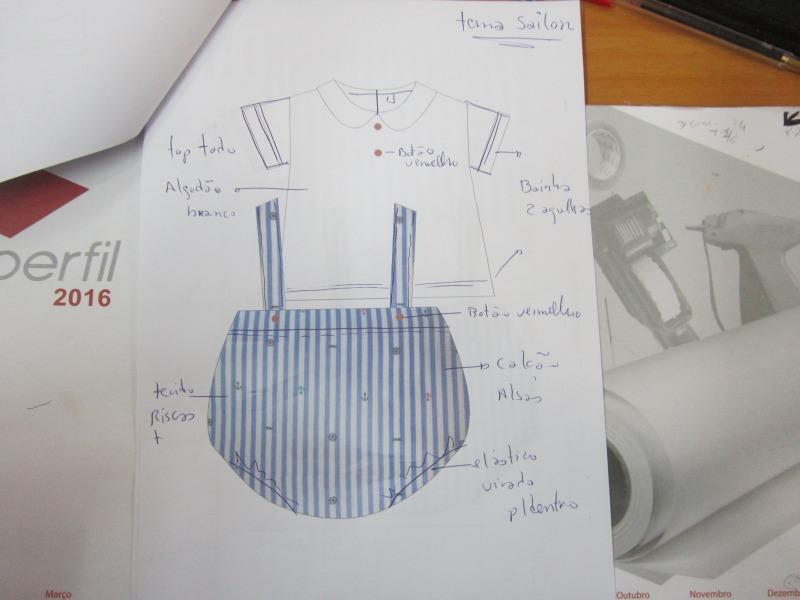 tema Sailor
top todo
Algodão
branco
Botão
vermelho
Bainha
2 agulhas
Botão vermelho
Calção
Alsas
tecido
Riscas
+
elástico
virado
p/dentro
perfil
2016
Março
Outubro
Novembro
Dezemb